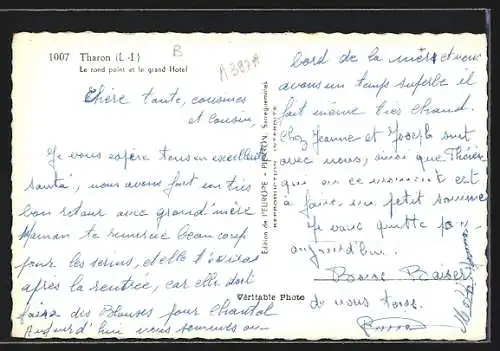 1007 Tharon (L.-I.)
Le rond point et le grand Hotel
B
A387A
Chère tante, cousines
et cousin
Je vous espère tous en excellente
santé, nous avons fait un très
bon retour avec grand'mère
Maman te remercie beaucoup
pour les , et elle t'écrira
après la rentrée, car elle doit
faire des Blouses pour Chantal
Aujourd'hui nous sommes au
Edition de l'EUROPE - PIERON, Sarreguemines
REPRODUCTION INTERDITE
Véritable Photo
bord de la mer et nous
avons un temps superbe il
fait même très chaud.
Chez Jeanne et Joseph sont
avec nous, ainsi que
qui en ce moment est
à faire un petit somme
Je vous quitte pour
aujourd'hui.
Bons Baisers
de nous tous.